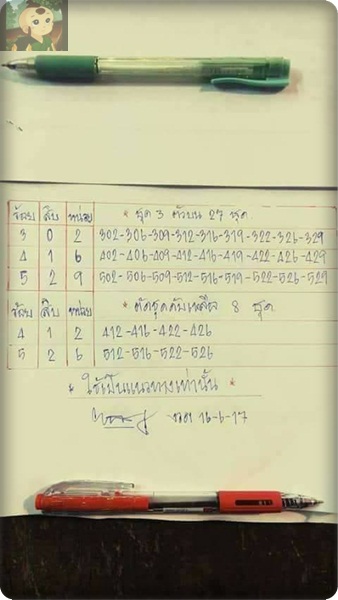 ร้อย สิบ หน่วย * ชุด 3 ตัวบน 27 ชุด.
3 0 2 302-306-309-312-316-319-322-326-329
4 1 6 402-406-409-412-416-419-422-426-429
5 2 9 502-506-509-512-516-519-522-526-529
ร้อย สิบ หน่วย * ตัดชุดดับเหลือ 8 ชุด
4 1 2 412-416-422-426
5 2 6 512-516-522-526
* ใช้เป็นแนวทางเท่านั้น *
งวด 16-6-17